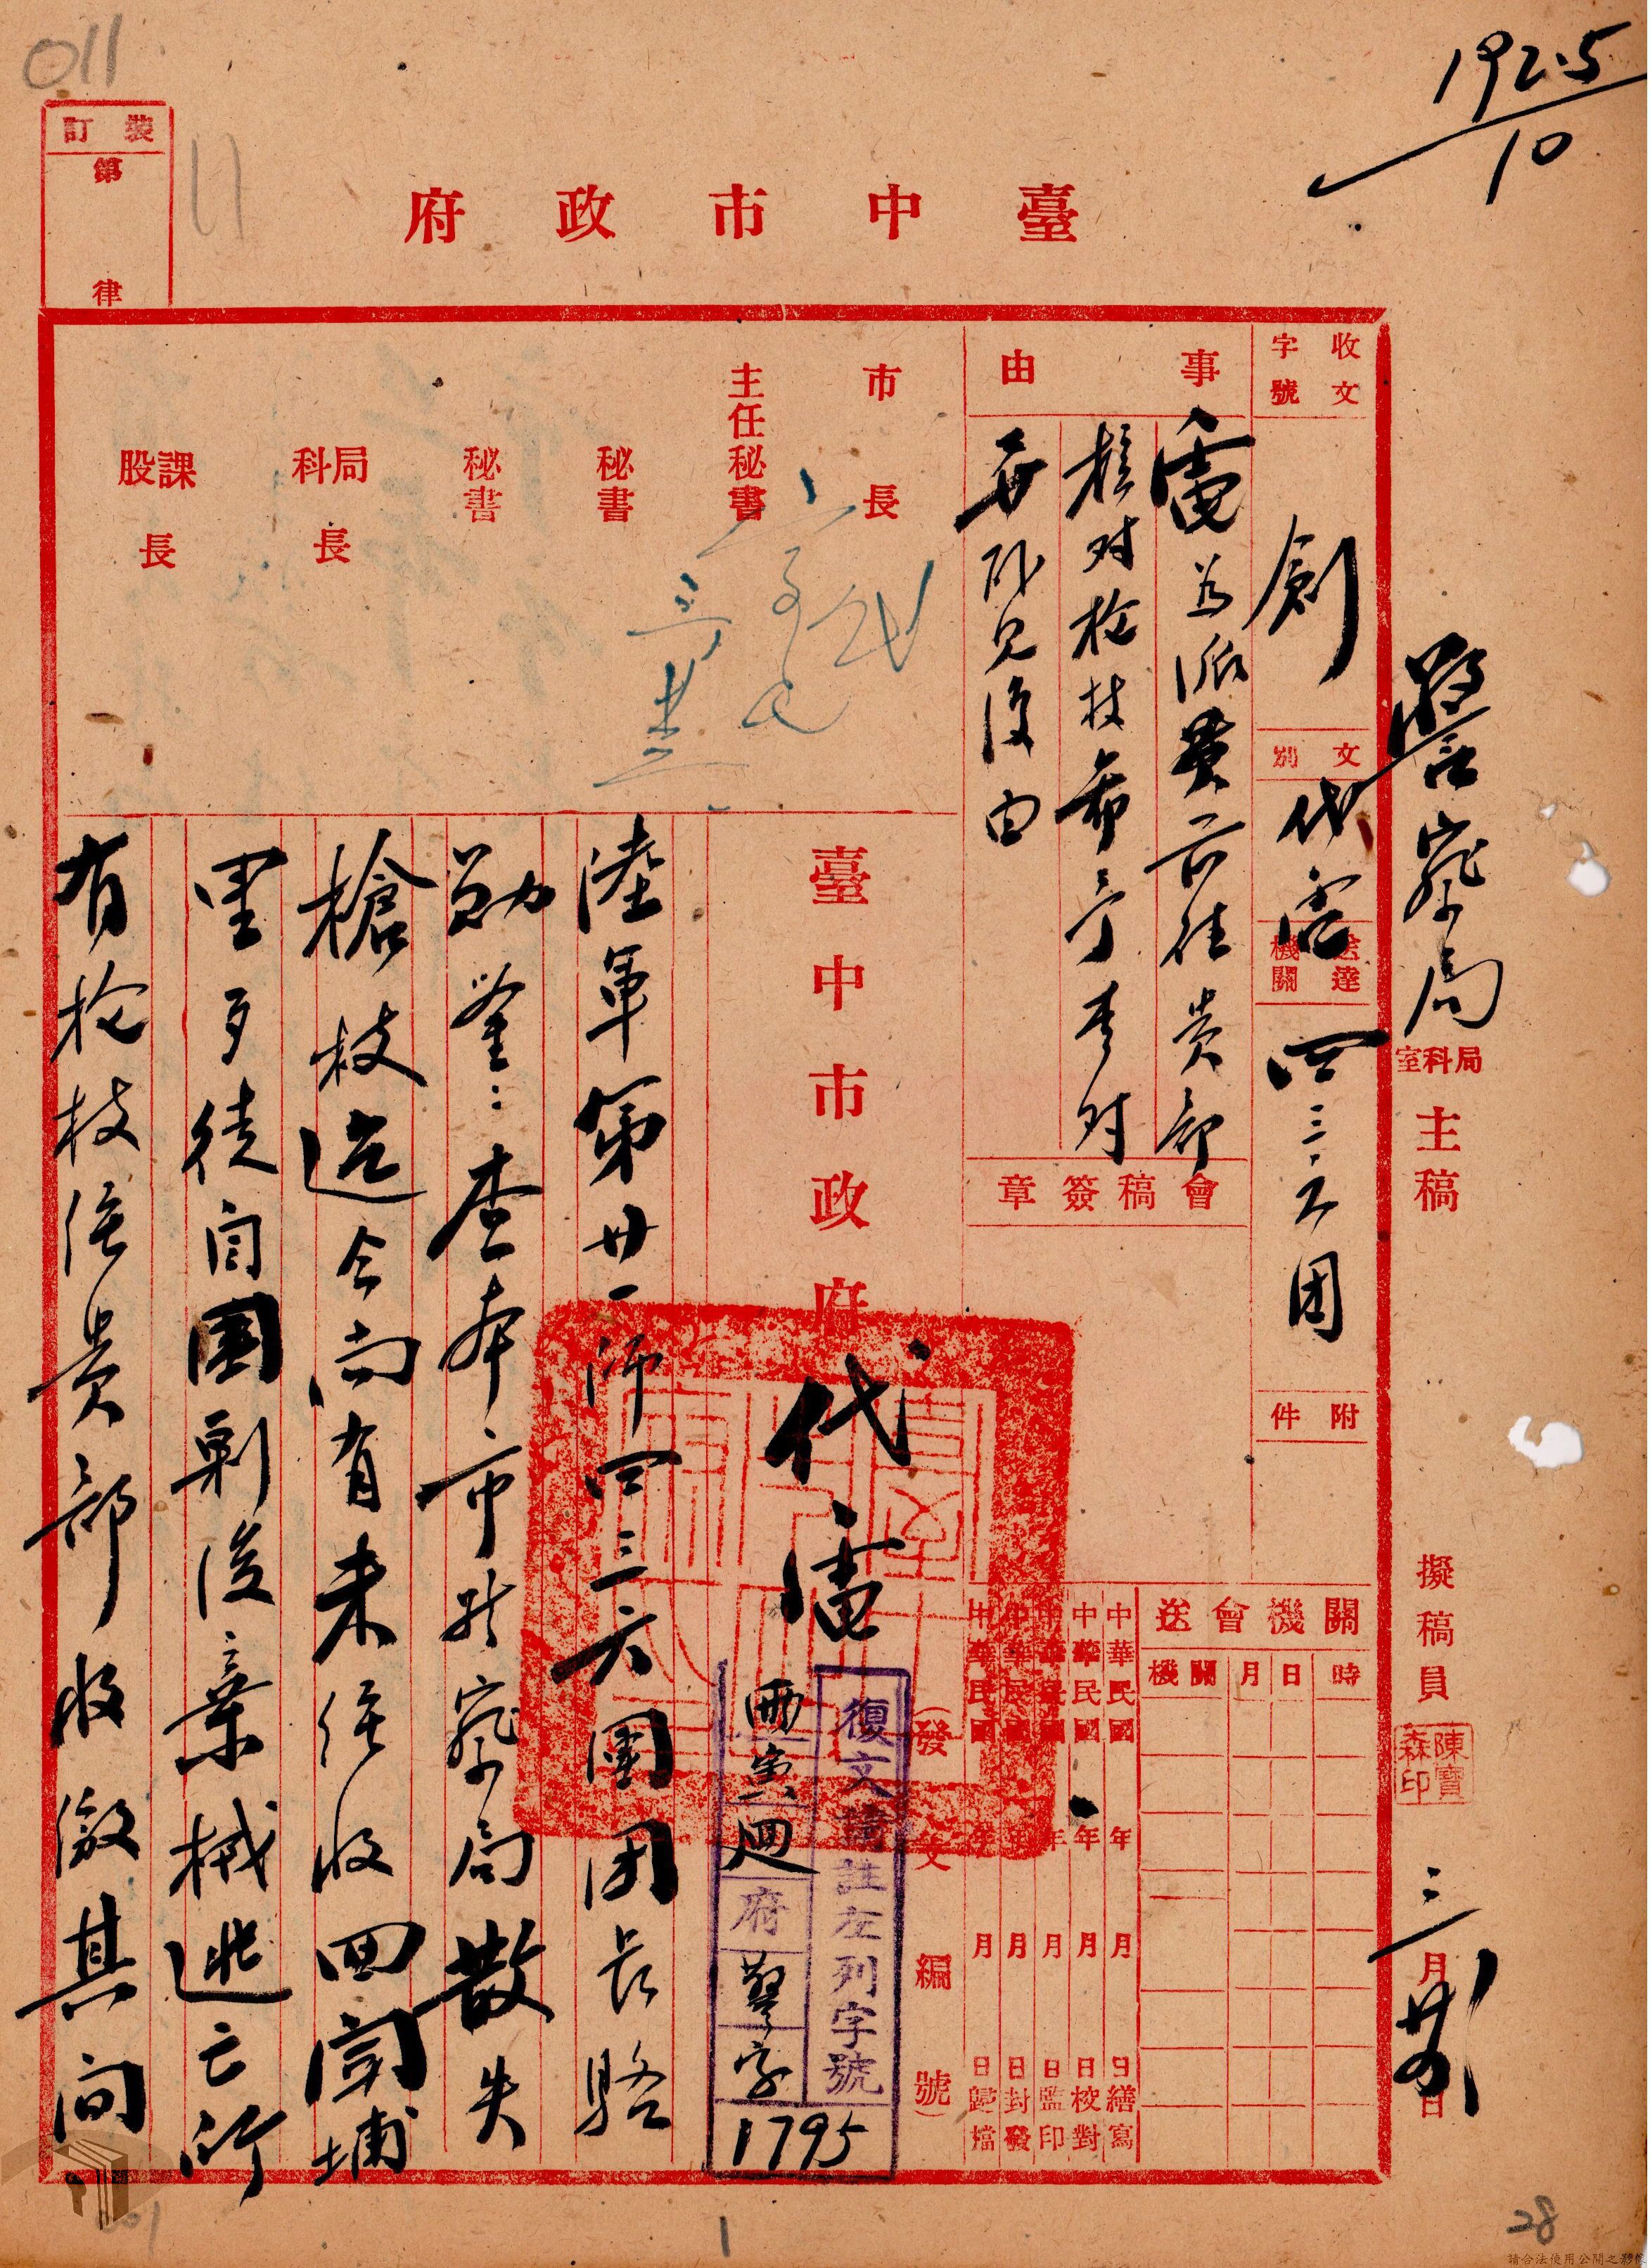 192.5
10
011
11
裝訂
第
律
臺中市政府
警察局
局科室
主稿
擬稿員
陳寶森印
三月廿四日
收文字號
創
文別
代電
送達機關
四三六团
附件
事由
電為派員前往貴部
核对枪枝希予查对
見復由
會稿簽章
關機會送
時
日
月
關機
中華民國 年 月 日繕寫
中華民國 年 月 日校對
中華民國 年 月 日監印
中華民國 年 月 日封發
中華民國 年 月 日歸檔
市長
主任秘書
秘書
秘書
局科長
課股長
臺中市政府
代電
(發文編號)
復文請註左列字號
府
警字
1795
陸軍第廿一師四三六團团长
勛鑒:查本市警察局散失
槍枝迄今尚有未經收回聞埔
里歹徒自圍剿後棄械逃亡所
有枪枝經貴部收繳其間
1
28
請合法使用公開之影像